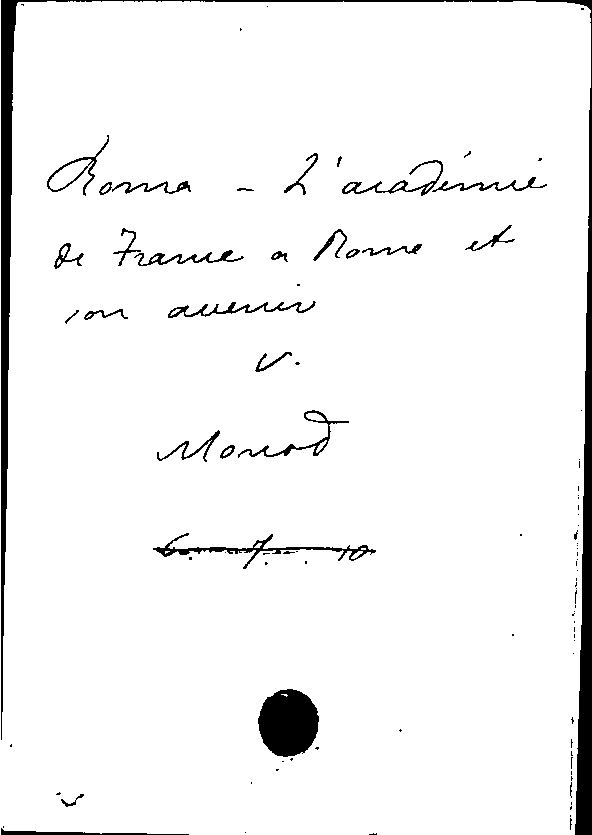 Roma - L'académie
de France a Rome et
son avenir
V.
Monod
6. 7. 10